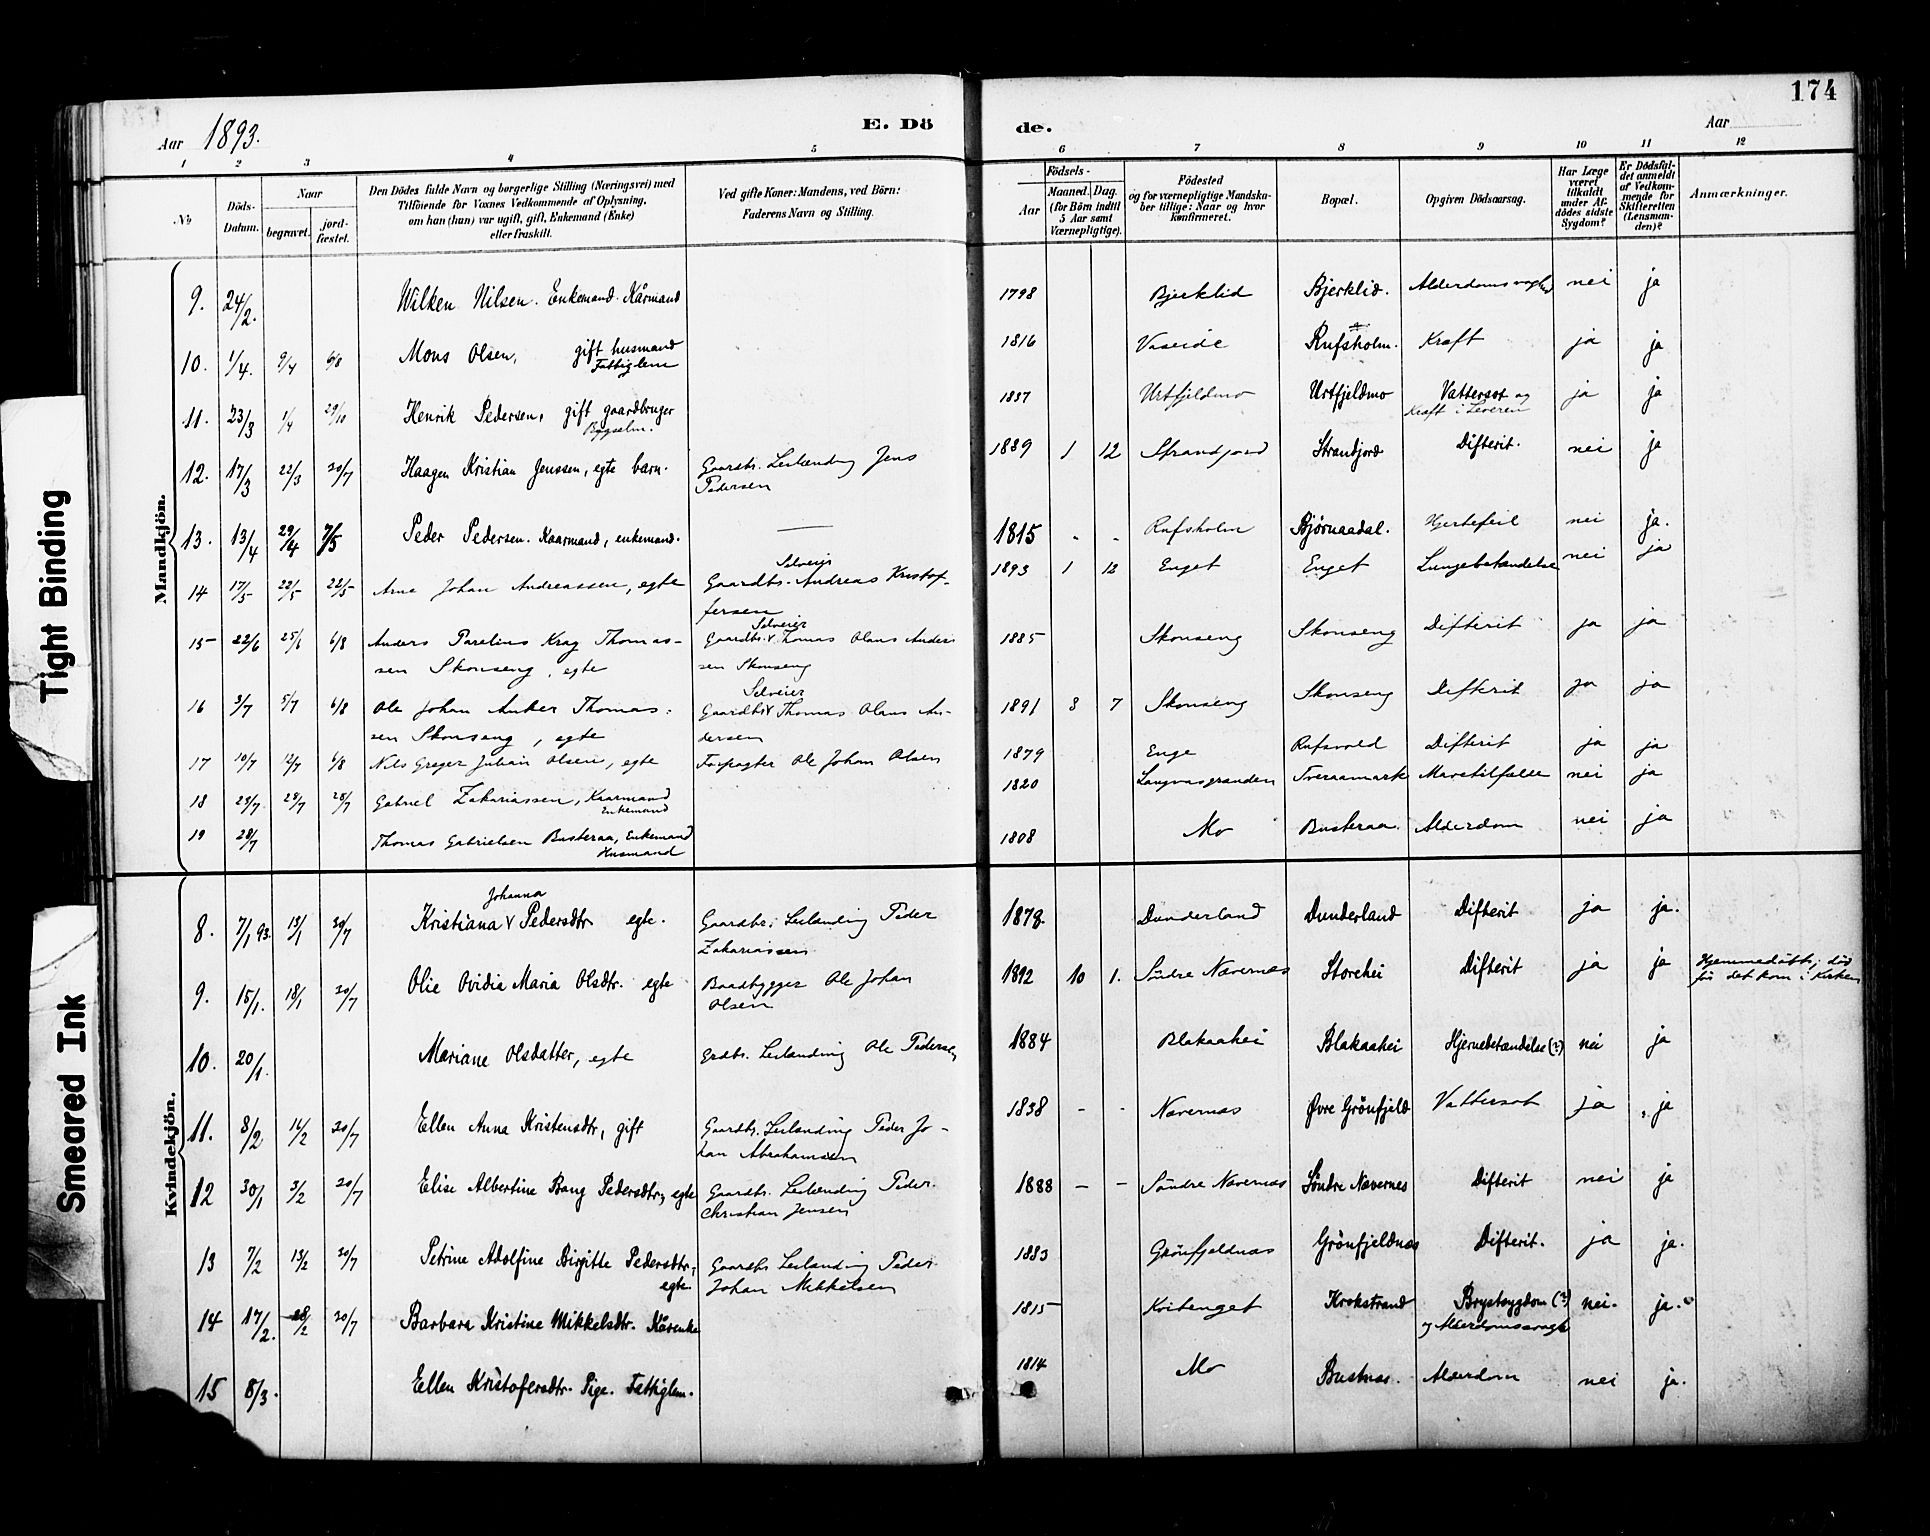 174
Aar 1893.
E. Dö
de.
Aar
1 2 3 4 5 6 7 8 9 10 11 12
No
Döds-Datum.
Naar
begravet.
jord-fæstet.
Den Dödes fulde Navn og borgerlige Stilling (Næringsvei) med
Tilföiende for Voxnes Vedkommende af Oplysning,
om han (hun) var ugift, gift, Enkemand (Enke)
eller fraskilt.
Ved gifte Koner: Mandens, ved Börn:
Faderens Navn og Stilling.
Födsels-
Aar
Maaned. Dag.
(for Börn indtil
5 Aar samt
Værnepligtige).
Födested
og for værnepligtige Mandska-
ber tillige: Naar og hvor
Konfirmeret.
Bopæl.
Opgiven Dödsaarsag.
Har Læge
været
tilkaldt
under Af-
dödes sidste
Sygdom?
Er Dödsfal-
det anmeldt
af Vedkom-
mende for
Skifteretten
(Lensman-
den)?
Anmærkninger.
Mandkjön.
9. 24/2. Wilken Nilsen. Enkemand. Kårmand 1798 Bjerklid Bjerklid. nei ja
10. 1/4. 9/4 6/8 Mons Olsen, gift husmand 1816 Vaseide Rufsholm. Kræft ja ja
Fattiglem
11. 23/3 1/4 29/10 Henrik Pedersen, gift gaardbruger 1837 Urtfjeldmo Urtfjeldmo Vattersot og ja ja
Bygselm. Kræft i Leveren
12. 17/3 22/3 20/7 Haagen Kristian Jenssen, egte barn. Gaardbr. Leilænding Jens 1889 1 12 Strandjord Strandjord Difterit. nei ja
Pedersen
13. 13/4 29/4 7/5 Peder Pedersen. Kaarmand, enkemand. — 1815 - - Rufsholm Bjørnaadal. Hjertefeil nei ja.
Selveier
14 17/5 22/5 22/5 Arne Johan Andreassen, egte Gaardbr. Andreas Kristof- 1893 1 12 Enget Enget Lungebetændelse nei ja
fersen
Selveier
15 22/6 25/6 6/8 Anders Parelius Krag Thomas- Gaardbr. v Thomas Olaus Ander- 1885 Skonseng Skonseng Difterit ja ja
sen Skonseng, egte sen Skonseng
Selveier
16 3/7 5/7 6/8 Ole Johan Anker Thomas- Gaardbr v Thomas Olaus An- 1891 3 7 Skonseng Skonseng Difterit ja ja
sen Skonseng, egte dersen
17 10/7 12/7 6/8 Nils Greger Julian Olsen, egte Forpagter Ole Johan Olsen 1879 Enge Rufsvold Difterit ja ja
18 23/7 28/7 28/7 Gabriel Zakariassen, Kaarmand 1820 Langvasgranden Tveraamark Mavetilfælde nei ja
Enkemand
19 28/7 Thomas Gabrielsen Busteraa, Enkemand 1808 Mo Busteraa. Alderdom nei ja
Husmand
Kvindekjön.
Johanna
8. 7/1 93. 13/1 20/7 Kristiana v Pedersdtr egte. Gaardbr. Leilænding Peder 1878. Dunderland Dunderland Difterit ja ja.
Zakariassen
9. 15/1. 18/1 20/7 Olie Ovidia Maria Olsdtr. egte Baadbygger Ole Johan 1892 10 1. Søndre Nævernes Storehei Difterit ja ja Hjemmedøbt, død
Olsen før det kom i Kirken
10. 20/1. Mariane Olsdatter, egte Grdbr. Leilænding Ole Pedersen 1884 Blakaahei Blakaahei Hjernebetændelse (?) nei ja
11. 8/2 16/2 20/7 Ellen Anna Kristensdtr, gift Gaardbr. Leilænding Peder Jo- 1838 - - Nævernes Øvre Grönfjeld Vattersot ja ja
han Abrahamsen
12 30/1 3/2 20/7 Elise Albertine Bang Pedersdtr, egte Gaardbr. Leilænding Peder 1888 - - Søndre Nævernes Söndre Nævernes Difterit nei ja
Christian Jensen
13 7/2 13/2 20/7 Petrine Adolfine Birgitte Pedersdtr, Gaardbr Leilænding Peder 1883 Grönfjeldnæs Grönfjeldnæs Difterit. ja ja.
egte Johan Mikkelsen
14 17/2. 28/2 20/7 Barbara Kristine Mikkelsdtr. Kårenke 1815 Kvitenget Krokstrand Brystsygdom (?) nei. ja.
15 8/3. Ellen Kristofersdtr. Pige. Fattiglem. 1814 Mo Bustnes. Alderdom nei ja.
Tight Binding
Smeared Ink